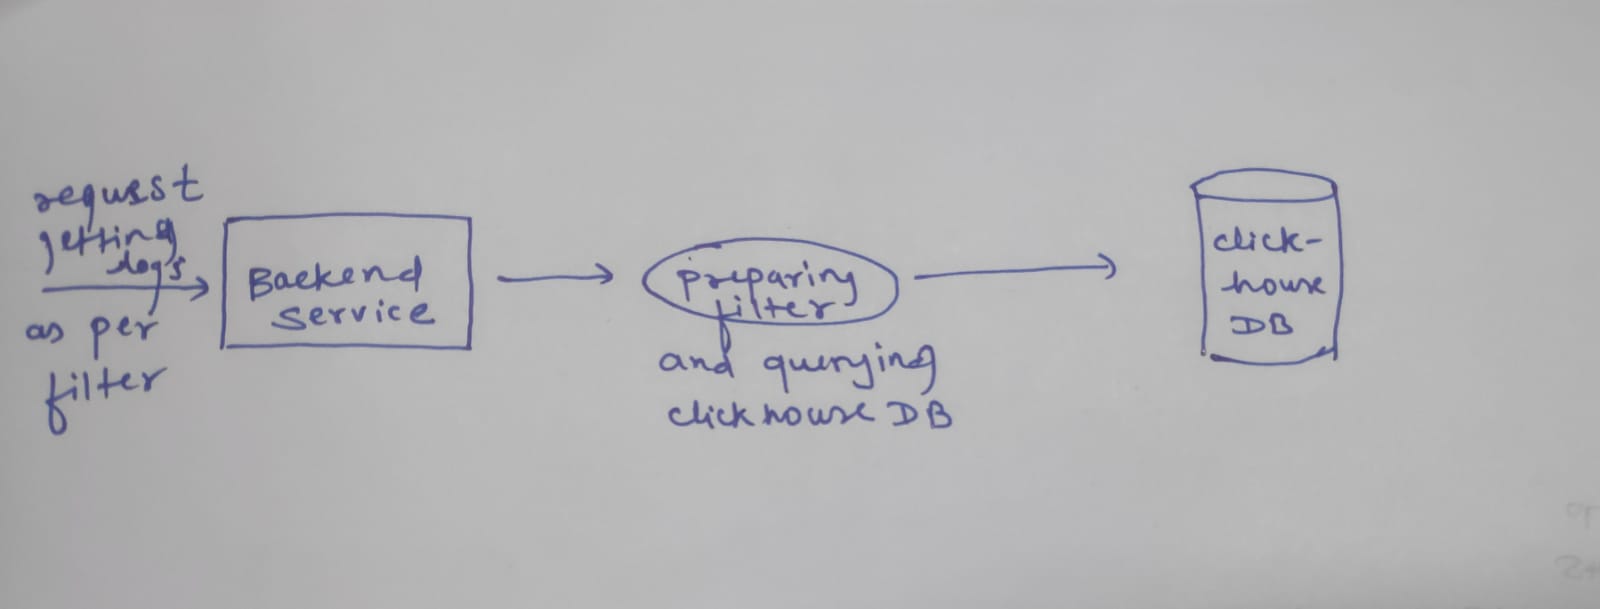 request
getting
logs
as per
filter
Backend
service
preparing
filter
and querying
clickhouse DB
click-
house
DB